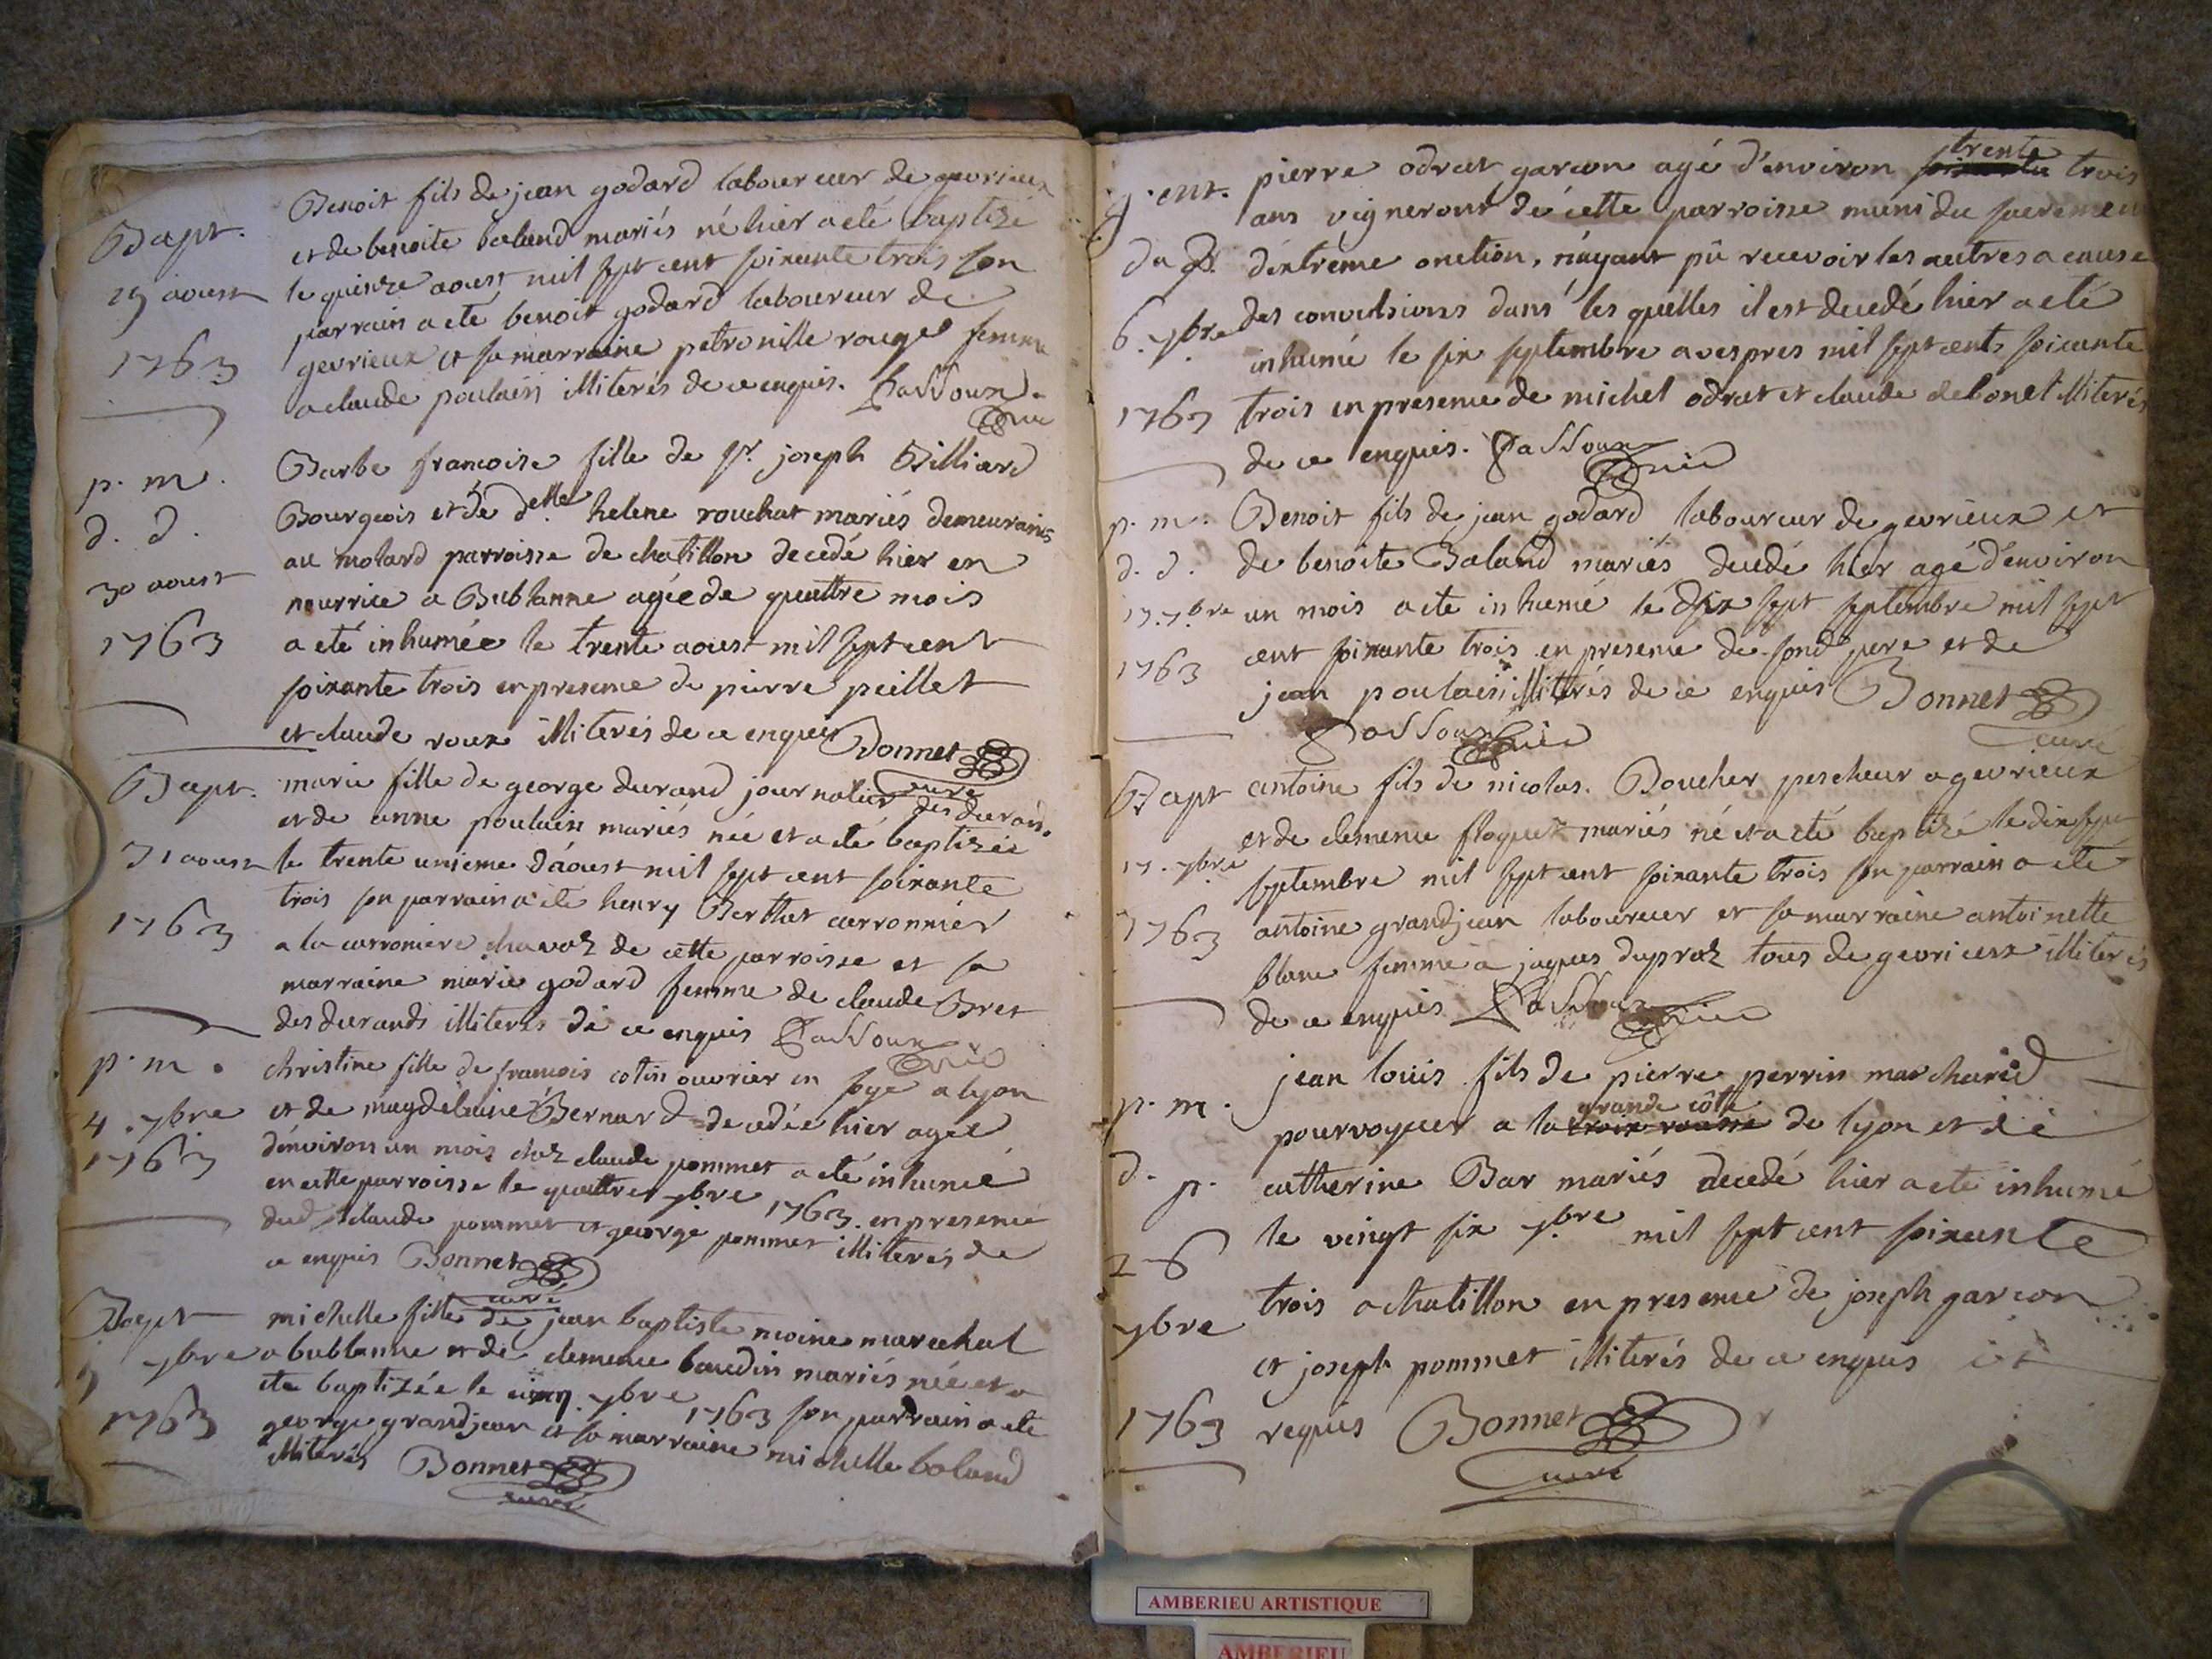 Bapt.
15 aoust
1763
Benoit fils de jean godard laboureur de gevrieux
et de benoite baland mariés né hier a eté baptizé
le quinze aoust mil sept cent soixante trois son
parrain a eté benoit godard laboureur de
gevrieux et sa marraine petronille rouget femme
a claude poulain illiterés de ce enquis. Passoux
vic
p. m.
d. d.
30 aoust
1763
Barbe francoise fille de sr. joseph Billiard
Bourgeois et de delle helene rouchat mariés demeurants
au molard parroisse de chatillon decedé hier en
nourrice a Bublanne agée de quattre mois
a eté inhumée le trente aoust mil sept cent
soixante trois en presence de pierre peillet
et claude roux illiterés de ce enquis Bonnet
curé
Bapt.
31 aoust
1763
marie fille de george durand journalier des durands
et de anne poulain mariés née et a eté baptizée
le trente unieme d'aoust mil sept cent soixante
trois son parrain a eté henry Berthat carronnier
a la carroniere chavoz de cette parroisse et sa
marraine marie godard femme de claude Bret
des durands illiterés de ce enquis Passoux
vic
p. m.
4. 7bre
1763
christine fille de francois cotin ouvrier en soye a lyon
et de magdelaine Bernard decedée hier agée
d'environ un mois chez claude pommet a eté inhumé
en cette parroisse le quattre 7bre 1763. en presence
dud claude pommet et george pommet illiterés de
ce enquis Bonnet
curé
Bapt
5 7bre
1763
michelle fille de jean baptiste moine marechal
a bublanne et de clemence baudin mariés née et a
ete baptizée le cinq. 7bre 1763 son parrain a ete
george grandjean et sa marraine michelle boland
illiterés Bonnet
curé
g. ent.
du
6. 7bre
1763
pierre odrat garcon agé d'environ trente trois
ans vigneront de cette parroisse muni du sacrement
d'extrème onction, n'ayant pû recevoir les autres a cause
des convulsions dans les quelles il est decedé hier a eté
inhumé le six septembre a vespres mil sept cents soixante
trois en presence de michel odrat et claude debonet illiterés
de ce enquis. Passoux
vic
p. m.
d. d.
17. 7bre
1763
Benoit fils de jean godard laboureur de gevrieux et
de benoite Baland mariés decedé hier agé d'environ
un mois a ete inhumé le dix sept septembre mil sept
cent soixante trois en presence de sond pere et de
jean poulain illiterés de ce enquis Bonnet
curé
Passoux vic
Bapt
17. 7bre
1763
antoine fils de nicolas. Boucher pescheur a gevrieux
et de clemence floquet mariés né et a eté baptizé le dix sept
septembre mil sept cent soixante trois son parrain a eté
antoine grandjean laboureur et sa marraine antoinette
blanc femme a jaques dupraz tous de gevrieux illiterés
de ce enquis Passoux vic
p. m.
d. p.
26
7bre
1763
jean loüis fils de pierre perrin marchand
pourvoyeur a la croix rousse grande côte de lyon et de
catherine Bar mariés decedé hier a eté inhumé
le vingt six 7bre mil sept cent soixante
trois a chatillon en presence de joseph garcon
et joseph pommet illiterés de ce enquis et
requis Bonnet
curé
AMBERIEU ARTISTIQUE
AMBERIEU